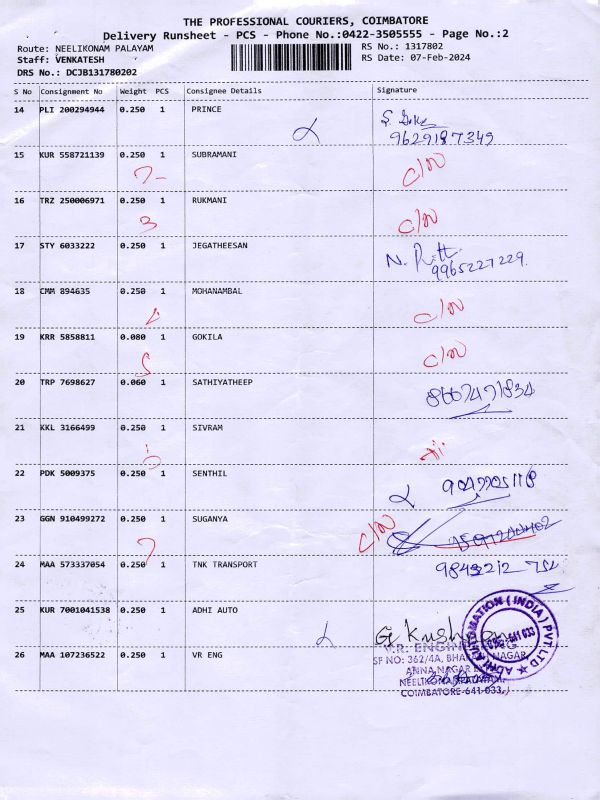 THE PROFESSIONAL COURIERS, COIMBATORE
Delivery Runsheet - PCS - Phone No.:0422-3505555 - Page No.:2
Route: NEELIKONAM PALAYAM
RS No.: 1317802
Staff: VENKATESH
RS Date: 07-Feb-2024
DRS No.: DCJB131780202
S No Consignment No Weight PCS Consignee Details Signature
14 PLI 200294944 0.250 1 PRINCE
9629187349
15 KUR 558721139 0.250 1 SUBRAMANI
16 TRZ 250006971 0.250 1 RUKMANI
3
17 STY 6033222 0.250 1 JEGATHEESAN
N.
9965227229
18 CMM 894635 0.250 1 MOHANAMBAL
19 KRR 5858811 0.080 1 GOKILA
5
20 TRP 7698627 0.060 1 SATHIYATHEEP
21 KKL 3166499 0.250 1 SIVRAM
22 PDK 5009375 0.250 1 SENTHIL
23 GGN 910499272 0.250 1 SUGANYA
24 MAA 573337054 0.250 1 TNK TRANSPORT
25 KUR 7001041538 0.250 1 ADHI AUTO
ADHI AUTOMATION (INDIA) PVT LTD
641 033
26 MAA 107236522 0.250 1 VR ENG
V.R. ENGINEERING
SF NO: 362/4A, NAGAR,
ANNA NAGAR
NEELIKONAMPALAYAM,
COIMBATORE-641 033.